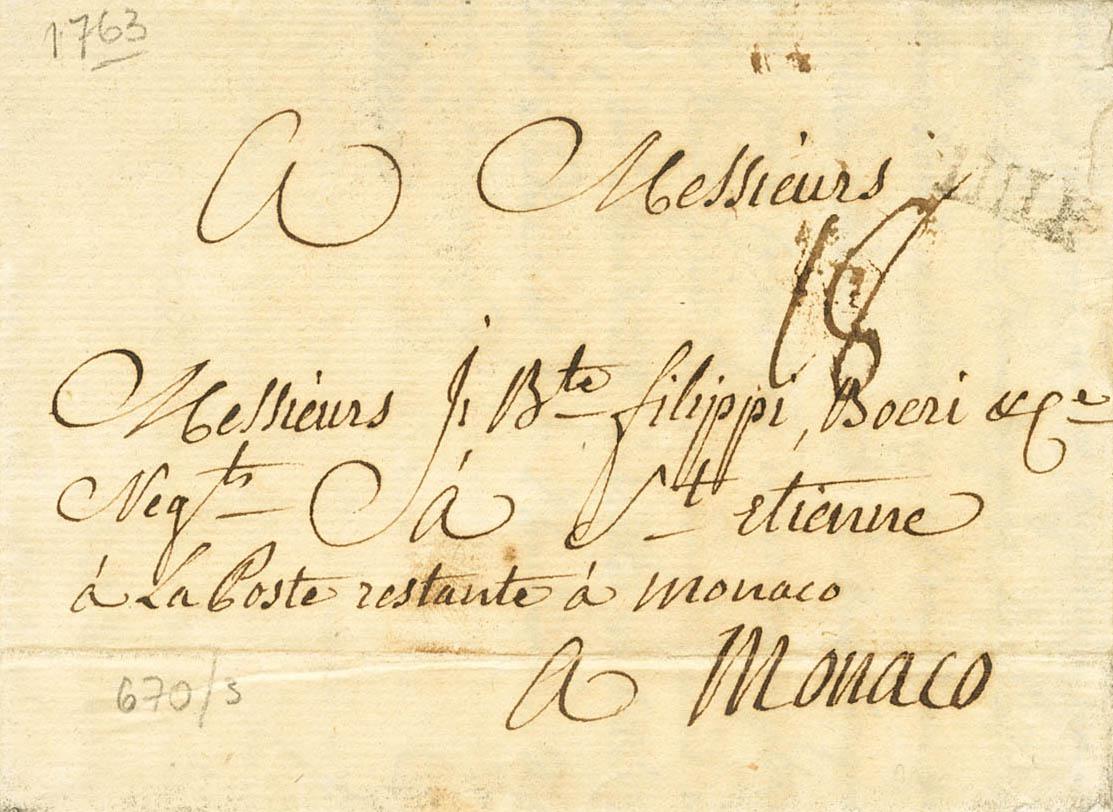 1763
A Messieurs
18
Messieurs J. Bte filippi, Boeri & Ce
Negts á St etienne
á La Poste restante á monaco
a Monaco
670/3